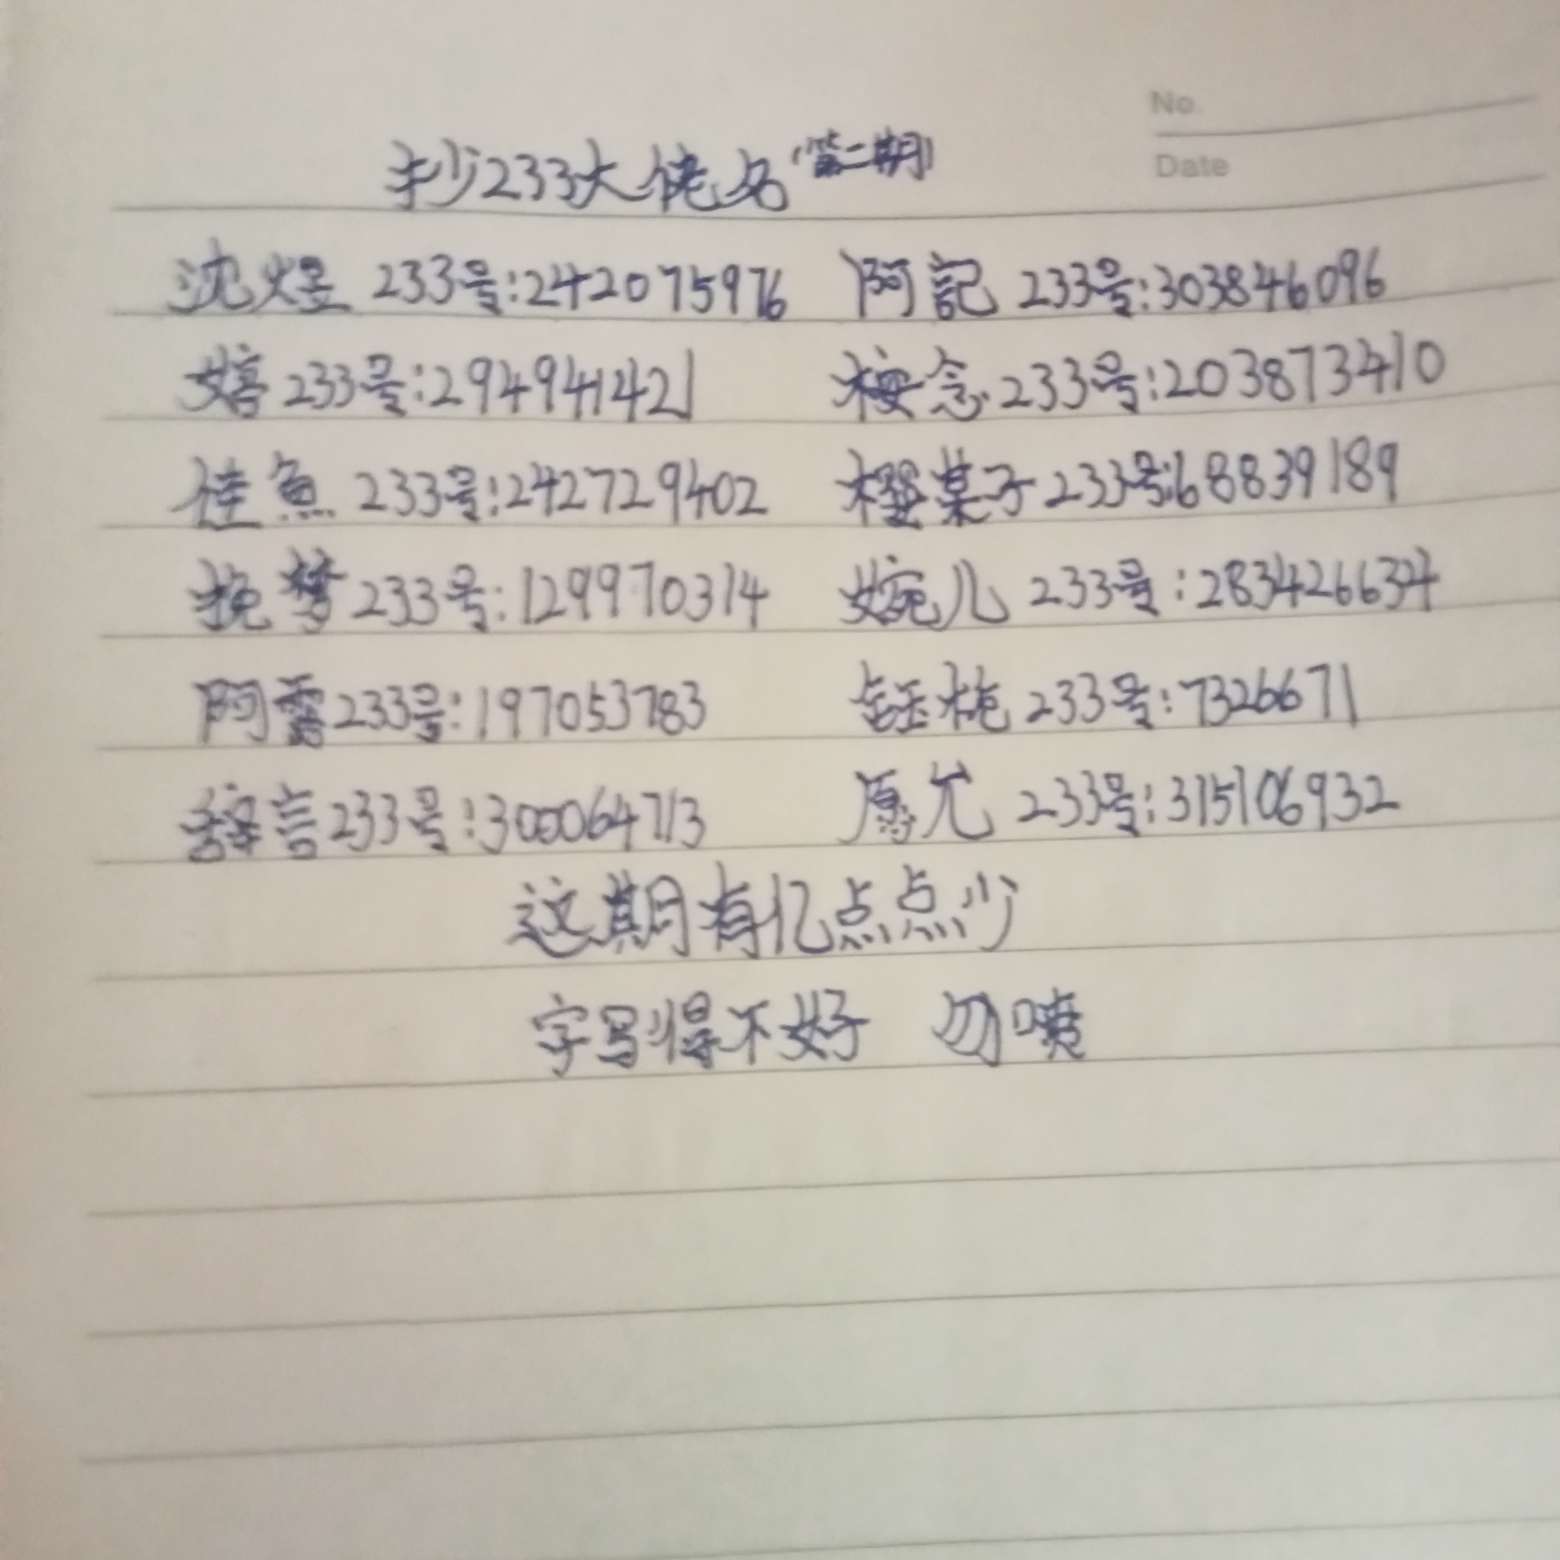 No.
Date
抄233大佬名(第二期)
沈煜 233号:242075976 阿記 233号:303846096
嬉 233号:294941421 桉念 233号:203873410
佳魚 233号:242729402 橙菓子 233号:68839189
挽梦 233号:129970314 婉儿 233号:283426634
阿露 233号:197053783 233号:7326671
辞言 233号:300064713 原尤 233号:315106932
这期有亿点点少
字写得不好 勿喷